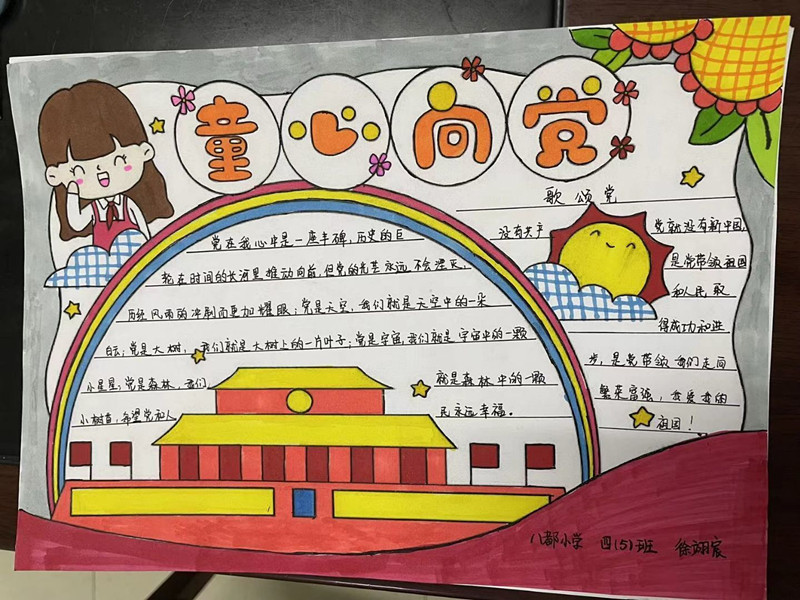 童心向党
党在我心中是一座丰碑，历史的巨
轮在时间的长河里推动向前，但党的光芒永远不会湮灭，
历经风雨的冲刷而更加耀眼；党是天空，我们就是天空中的一朵
白云；党是大树，我们就是大树上的一片叶子；党是宇宙，我们就是宇宙中的一颗
小星星；党是森林，我们就是森林中的一颗
小树苗，希望党和人民永远幸福。
歌颂党
没有共产党就没有新中国，
是党带领祖国
和人民取
得成功和进
步，是党带领我们走向
繁荣富强，我爱我的
祖国！
八都小学 四(5)班 徐翊宸